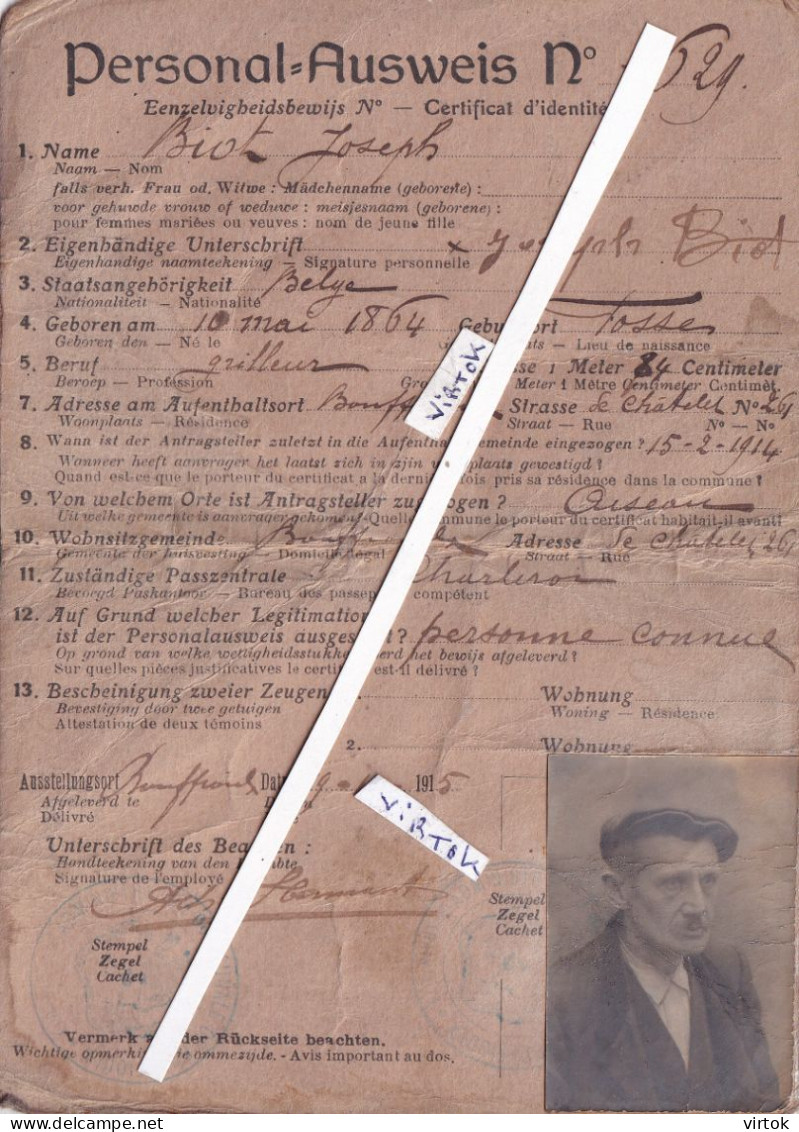 Personal=Ausweis Nº 629.
Eenzelvigheidsbewijs Nº — Certificat d'identité
1. Name Biot Joseph
Naam — Nom
falls verh. Frau od. Witwe : Mädchenname (geborene) :
voor gehuwde vrouw of weduwe : meisjesnaam (geborene) :
pour femmes mariées ou veuves : nom de jeune fille
2. Eigenhändige Unterschrift x Joseph Biot
Eigenhandige naamteekening — Signature personnelle
3. Staatsangehörigkeit Belge
Nationaliteit — Nationalité
4. Geboren am 10 mai 1864 Fosse
Geboren den — Né le Lieu de naissance
5. Beruf grilleur 1 Meter 84 Centimeter
Beroep — Profession Meter 1 Mètre Centimeter Centimèt.
7. Adresse am Aufenthaltsort Strasse de Châtelet Nº 261
Woonplants — Résidence Straat — Rue Nº — Nº
8. Wann ist der Antragsteller zuletzt in die Aufenthaltsgemeinde eingezogen ? 15-2-1914
Wanneer heeft aanvrager het laatst zich in zijn woonplants gevestigd ?
Quand est-ce que le porteur du certificat a la dernière fois pris sa résidence dans la commune ?
9. Von welchem Orte ist Antragsteller zugezogen ? Oiseau
Uit welke gemeente is aanvrager gekomen Quelle commune le porteur du certificat habitait-il avant
10. Wohnsitzgemeinde Adresse de Châtelet, 261
Gemeente der huisvesting — Domicile légal Straat — Rue
11. Zuständige Passzentrale Charleroi
Bevoegd Paskantoor — Bureau des passeports compétent
12. Auf Grund welcher Legitimation
ist der Personalausweis ausgestellt ? personne connue
Op grond van welke wettigheidsstukken werd het bewijs afgeleverd ?
Sur quelles pièces justificatives le certificat est-il délivré ?
13. Bescheinigung zweier Zeugen Wohnung
Bevestiging door twee getuigen Woning — Résidence
Attestation de deux témoins
2. Wohnung
Ausstellungsort Bouffioulx 1915
Afgeleverd te
Délivré
Unterschrift des Beamten :
Handteekening van den
Signature de l'employé
Stempel
Zegel
Cachet
Stempel
Zegel
Cachet
Vermerk auf der Rückseite beachten.
Wichtige opmerking ommezijde. - Avis important au dos.
ViRTOK
ViRTOK
delcampe.net
virtok